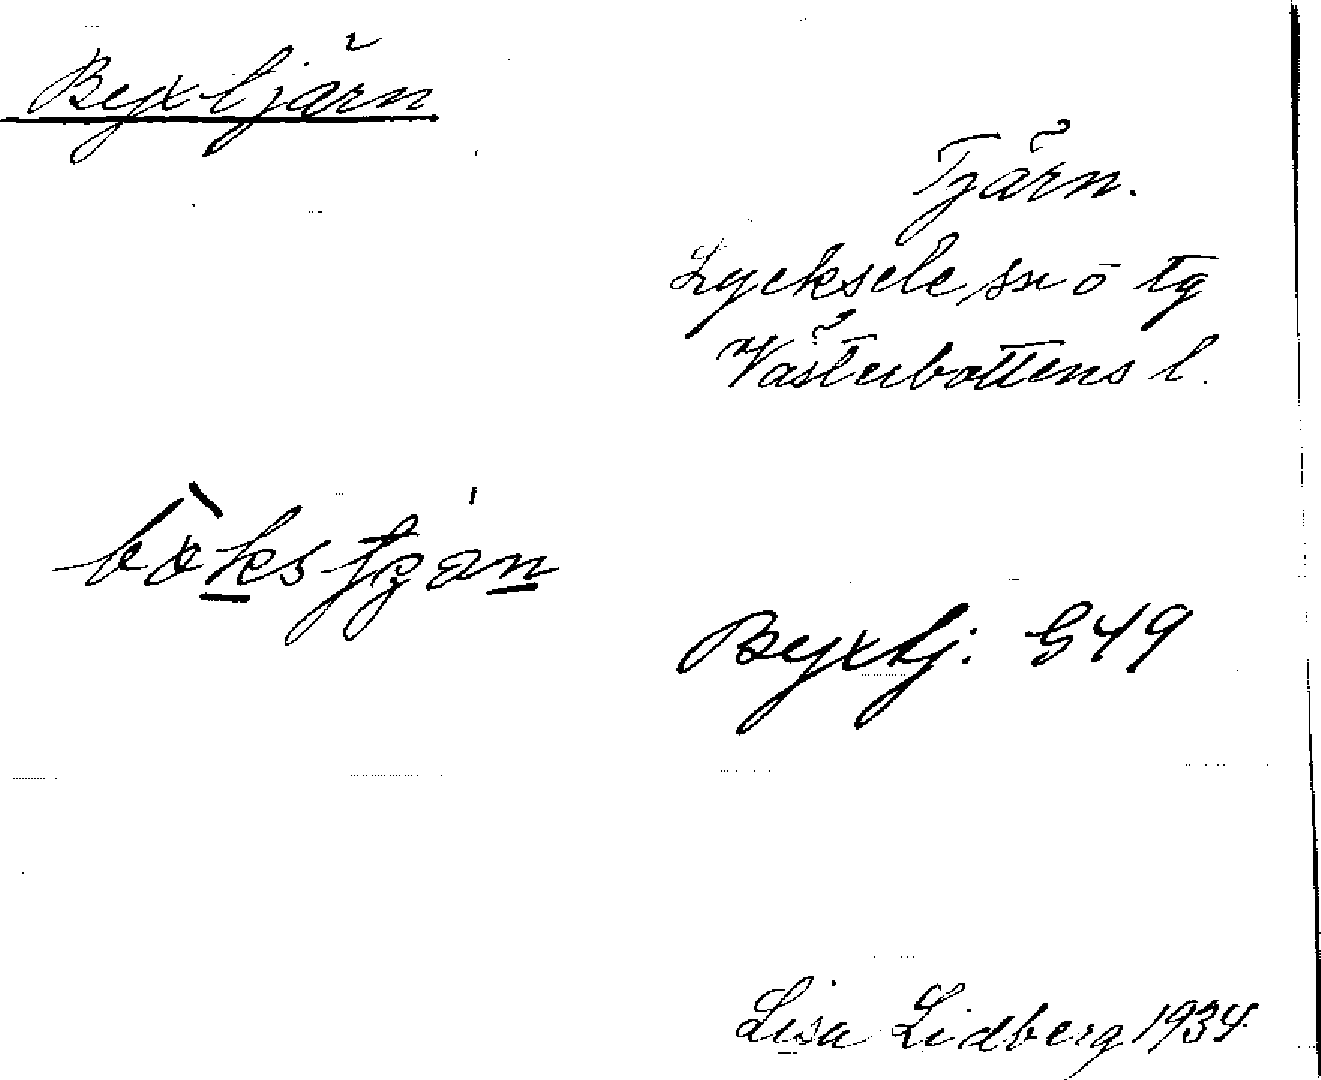 Byxtjärn
Tjärn.
Lycksele sn o tg
Västerbottens l.
Byxtj: G49
Lisa Lidberg 1934